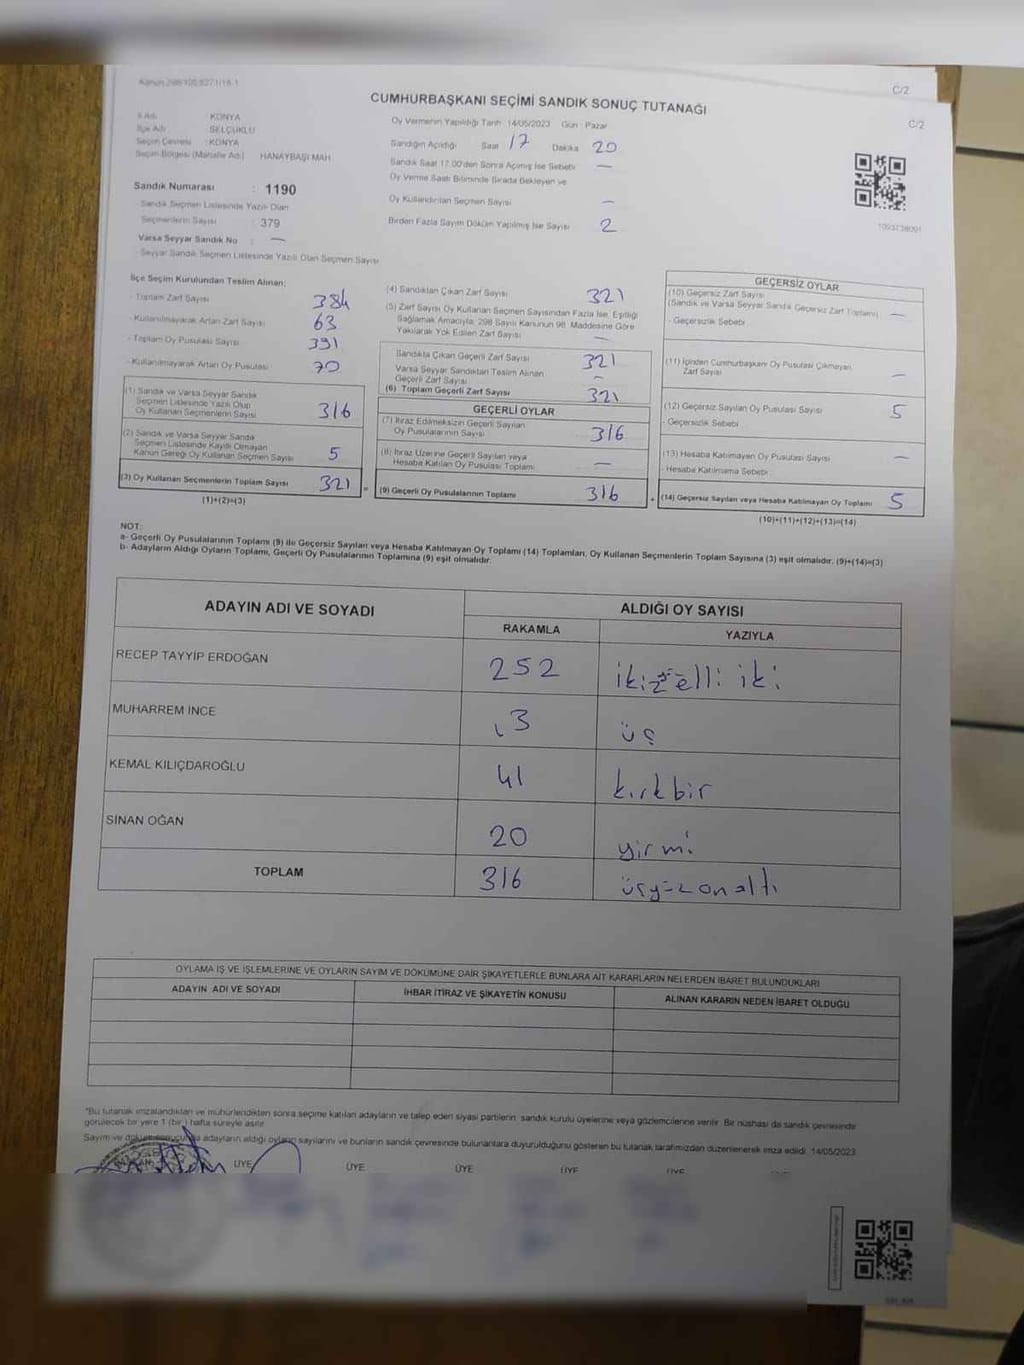 Kanun 298/105,6271/16-1
C/2
C/2
CUMHURBAŞKANI SEÇİMİ SANDIK SONUÇ TUTANAĞI
İl Adı : KONYA
İlçe Adı : SELÇUKLU
Seçim Çevresi : KONYA
Seçim Bölgesi (Mahalle Adı) : HANAYBAŞI MAH.
Sandık Numarası : 1190
- Sandık Seçmen Listesinde Yazılı Olan
Seçmenlerin Sayısı : 379
Varsa Seyyar Sandık No : —
- Seyyar Sandık Seçmen Listesinde Yazılı Olan Seçmen Sayısı
Oy Vermenin Yapıldığı Tarih 14/05/2023 Gün : Pazar
Sandığın Açıldığı Saat 17 Dakika 20
Sandık Saat 17:00'den Sonra Açılmış İse Sebebi —
Oy Verme Saati Bitiminde Sırada Bekleyen ve
Oy Kullandırılan Seçmen Sayısı —
Birden Fazla Sayım Döküm Yapılmış İse Sayısı 2
İlçe Seçim Kurulundan Teslim Alınan;
- Toplam Zarf Sayısı 384
- Kullanılmayarak Artan Zarf Sayısı 63
- Toplam Oy Pusulası Sayısı 391
- Kullanılmayarak Artan Oy Pusulası 70
(1) Sandık ve Varsa Seyyar Sandık
Seçmen Listesinde Yazılı Olup
Oy Kullanan Seçmenlerin Sayısı 316
(2) Sandık ve Varsa Seyyar Sandık
Seçmen Listesinde Kayıtlı Olmayan
Kanun Gereği Oy Kullanan Seçmen Sayısı 5
(3) Oy Kullanan Seçmenlerin Toplam Sayısı 321 =
(1)+(2)=(3)
(4) Sandıktan Çıkan Zarf Sayısı 321
(5) Zarf Sayısı Oy Kullanan Seçmen Sayısından Fazla İse, Eşitliği
Sağlamak Amacıyla, 298 Sayılı Kanunun 98. Maddesine Göre
Yakılarak Yok Edilen Zarf Sayısı —
Sandıkta Çıkan Geçerli Zarf Sayısı 321
Varsa Seyyar Sandıktan Teslim Alınan
Geçerli Zarf Sayısı —
(6) Toplam Geçerli Zarf Sayısı 321
GEÇERLİ OYLAR
(7) İtiraz Edilmeksizin Geçerli Sayılan
Oy Pusulalarının Sayısı 316
(8) İtiraz Üzerine Geçerli Sayılan veya
Hesaba Katılan Oy Pusulası Toplamı —
(9) Geçerli Oy Pusulalarının Toplamı 316 +
GEÇERSİZ OYLAR
(10) Geçersiz Zarf Sayısı
(Sandık ve Varsa Seyyar Sandık Geçersiz Zarf Toplamı) —
- Geçersizlik Sebebi :
(11) İçinden Cumhurbaşkanı Oy Pusulası Çıkmayan
Zarf Sayısı —
(12) Geçersiz Sayılan Oy Pusulası Sayısı 5
- Geçersizlik Sebebi :
(13) Hesaba Katılmayan Oy Pusulası Sayısı —
- Hesaba Katılmama Sebebi :
(14) Geçersiz Sayılan veya Hesaba Katılmayan Oy Toplamı 5
(10)+(11)+(12)+(13)=(14)
NOT:
a- Geçerli Oy Pusulalarının Toplamı (9) ile Geçersiz Sayılan veya Hesaba Katılmayan Oy Toplamı (14) Toplamları, Oy Kullanan Seçmenlerin Toplam Sayısına (3) eşit olmalıdır. (9)+(14)=(3)
b- Adayların Aldığı Oyların Toplamı, Geçerli Oy Pusulalarının Toplamına (9) eşit olmalıdır.
ADAYIN ADI VE SOYADI ALDIĞI OY SAYISI
RAKAMLA YAZIYLA
RECEP TAYYİP ERDOĞAN 252 ikiyüzelli iki
MUHARREM İNCE 3 üç
KEMAL KILIÇDAROĞLU 41 kırkbir
SİNAN OĞAN 20 yirmi
TOPLAM 316 üçyüzonaltı
OYLAMA İŞ VE İŞLEMLERİNE VE OYLARIN SAYIM VE DÖKÜMÜNE DAİR ŞİKAYETLERLE BUNLARA AİT KARARLARIN NELERDEN İBARET BULUNDUKLARI
ADAYIN ADI VE SOYADI İHBAR İTİRAZ VE ŞİKAYETİN KONUSU ALINAN KARARIN NEDEN İBARET OLDUĞU
*Bu tutanak imzalandıktan ve mühürlendikten sonra seçime katılan adayların ve talep eden siyasi partilerin sandık kurulu üyelerine veya gözlemcilerine verilir. Bir nüshası da sandık çevresinde
görülecek bir yere 1 (bir) hafta süreyle asılır.
Sayım ve döküm sonucunda adayların aldığı oyların sayılarını ve bunların sandık çevresinde bulunanlara duyurulduğunu gösteren bu tutanak tarafımızdan düzenlenerek imza edildi. 14/05/2023
ÜYE ÜYE ÜYE ÜYE ÜYE